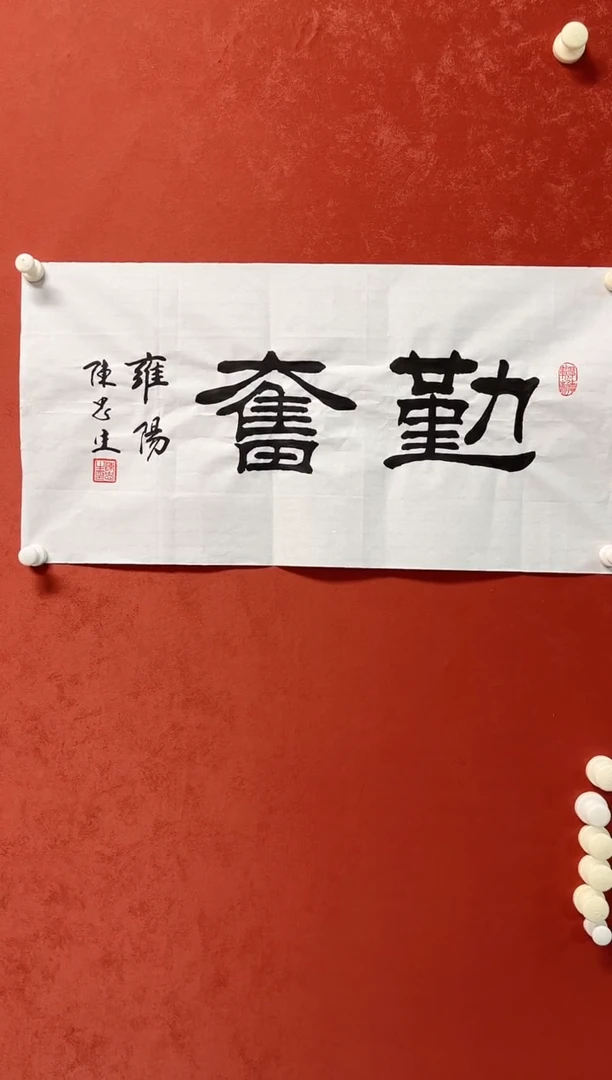 勤奮
雍陽
陳忠生